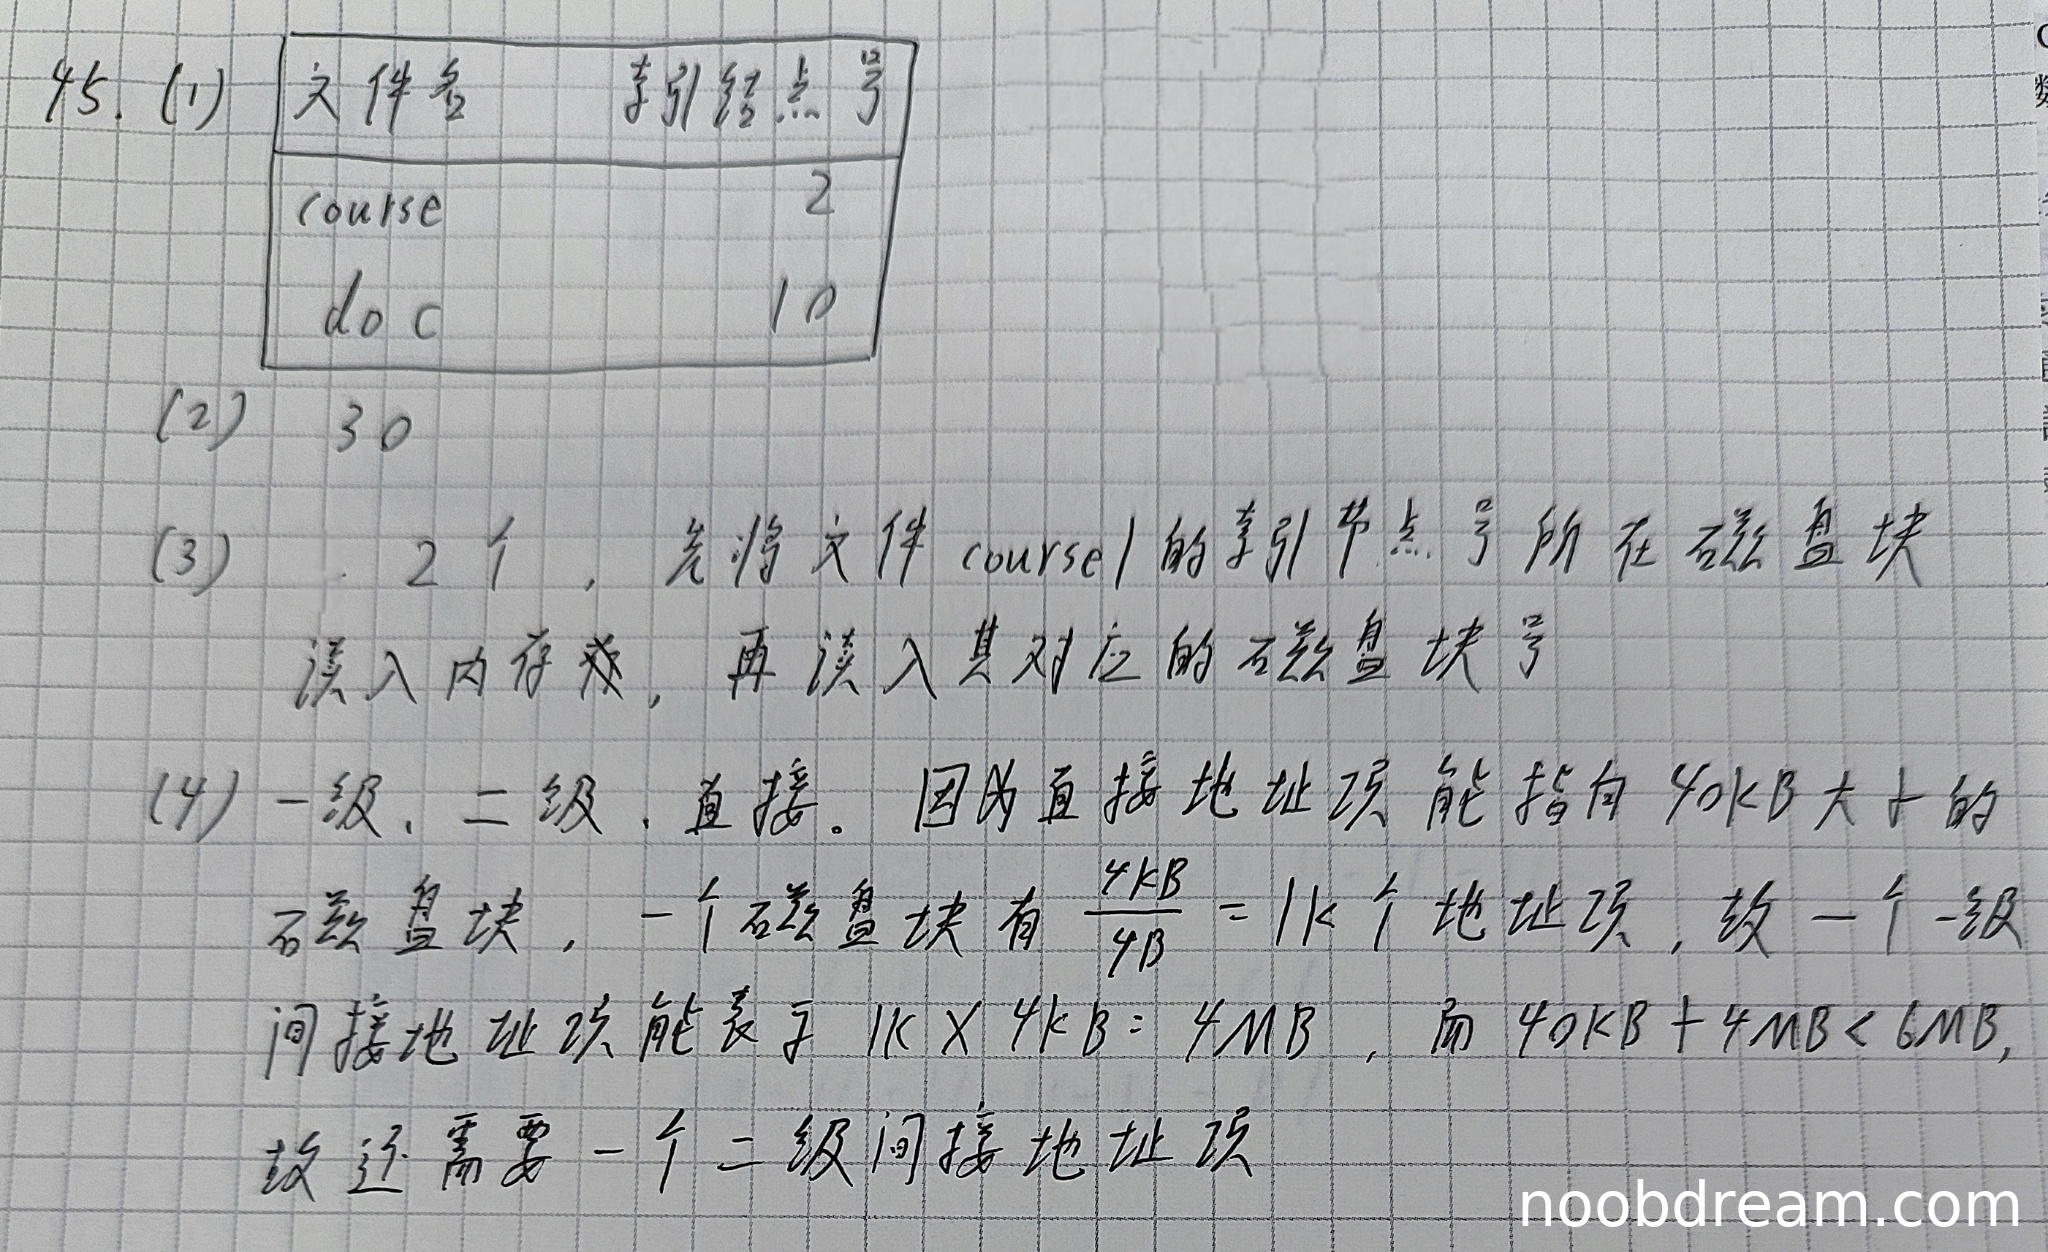 45. (1) 文件名 索引结点号
course 2
doc 10
(2) 30
(3) 2个, 先将文件course1的索引节点号所在磁盘块
读入内存, 再读入其对应的磁盘块号
(4) 一级、二级、直接。因为直接地址项能指向40KB大小的
磁盘块, 一个磁盘块有 4KB/4B = 1K个地址项, 故一个一级
间接地址项能表示 1K × 4KB = 4MB, 而40KB+4MB<6MB,
故还需要一个二级间接地址项
noobdream.com